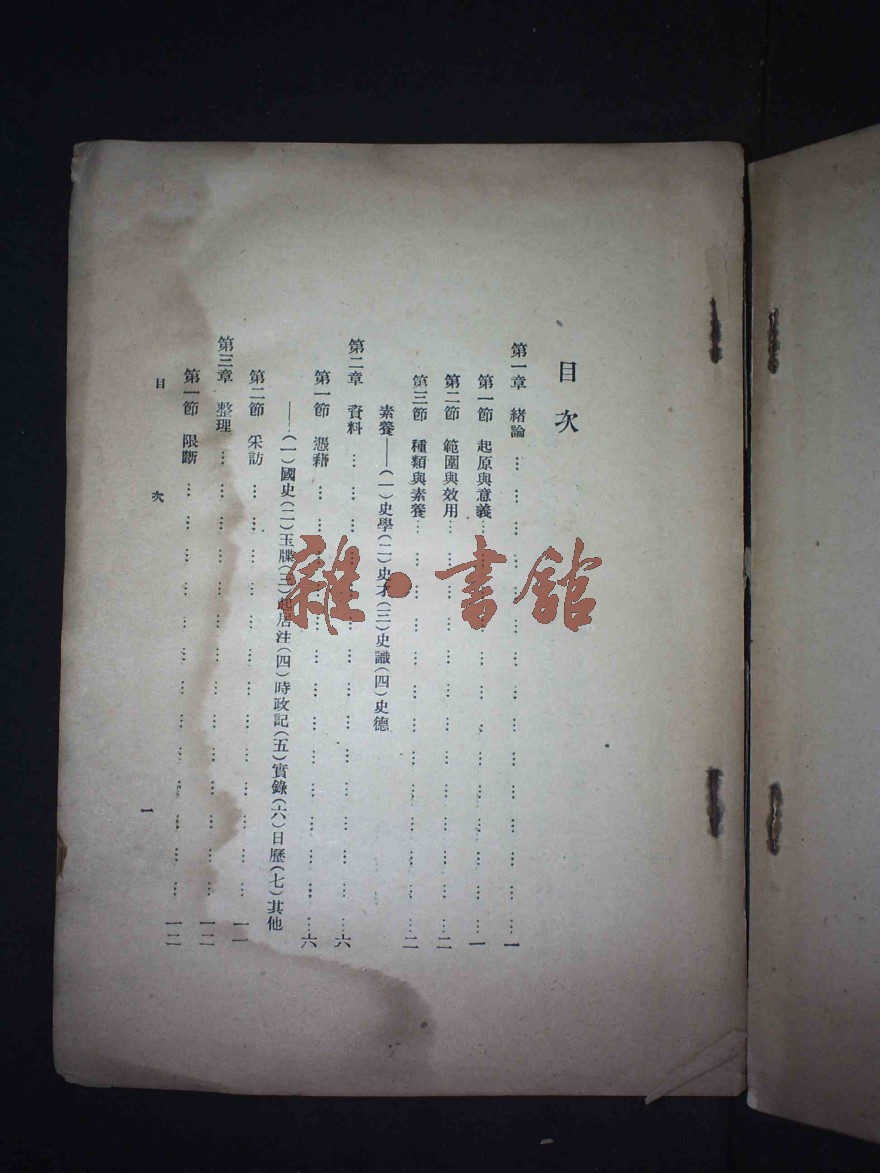 目次
第一章 緒論 … … … … … … … … … … … … … … … 一
第一節 起原與意義 … … … … … … … … … … … … 一
第二節 範圍與效用 … … … … … … … … … … … … 二
第三節 種類與素養 … … … … … … … … … … … … 二
素養——(一)史學(二)史才(三)史識(四)史德
第二章 資料 … … … … … … … … … … … … … … … 六
第一節 憑藉 … … … … … … … … … … … … … … 六
——(一)國史(二)玉牒(三)起居注(四)時政記(五)實錄(六)日歷(七)其他
第二節 采訪 … … … … … … … … … … … … … … 一一
第三章 整理 … … … … … … … … … … … … … … … 一二
第一節 限斷 … … … … … … … … … … … … … … 一二
目次
一
雜·書館